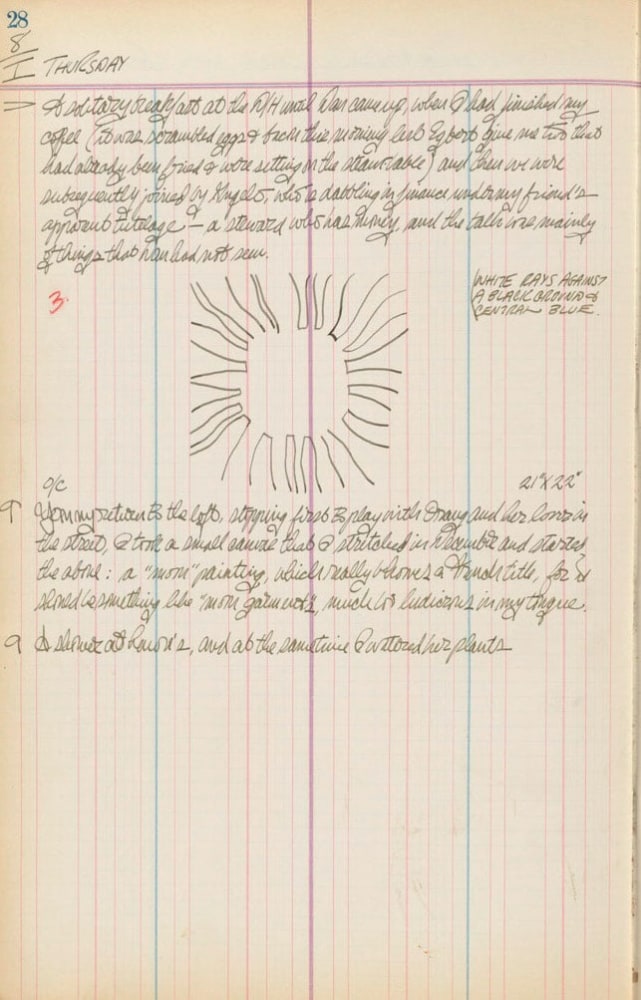 28
8
I THURSDAY
A solitary breakfast at the D/H until Dan came up, when I had finished my
coffee (it was scrambled eggs & bacon this morning but Egbert give me two that
had already been fried & were setting on the steamtable) and then we were
subsequently joined by Angelo, who is dabbling in finance under my friend's
apparent tutelage – a steward who has money, and the talk was mainly
of things that had not
3.
WHITE RAYS AGAINST
A BLACK GROUND &
CENTRAL BLUE.
o/c
21" X 22"
my return to the loft, stopping first to play with and her in
the street, I took a small canvas that I stretched in December and started
the above: a "mom" painting, which really a French title, for
should be something like "mon", much too ludicrous in my tongue.
A shower at, and at the same time I watered her plants